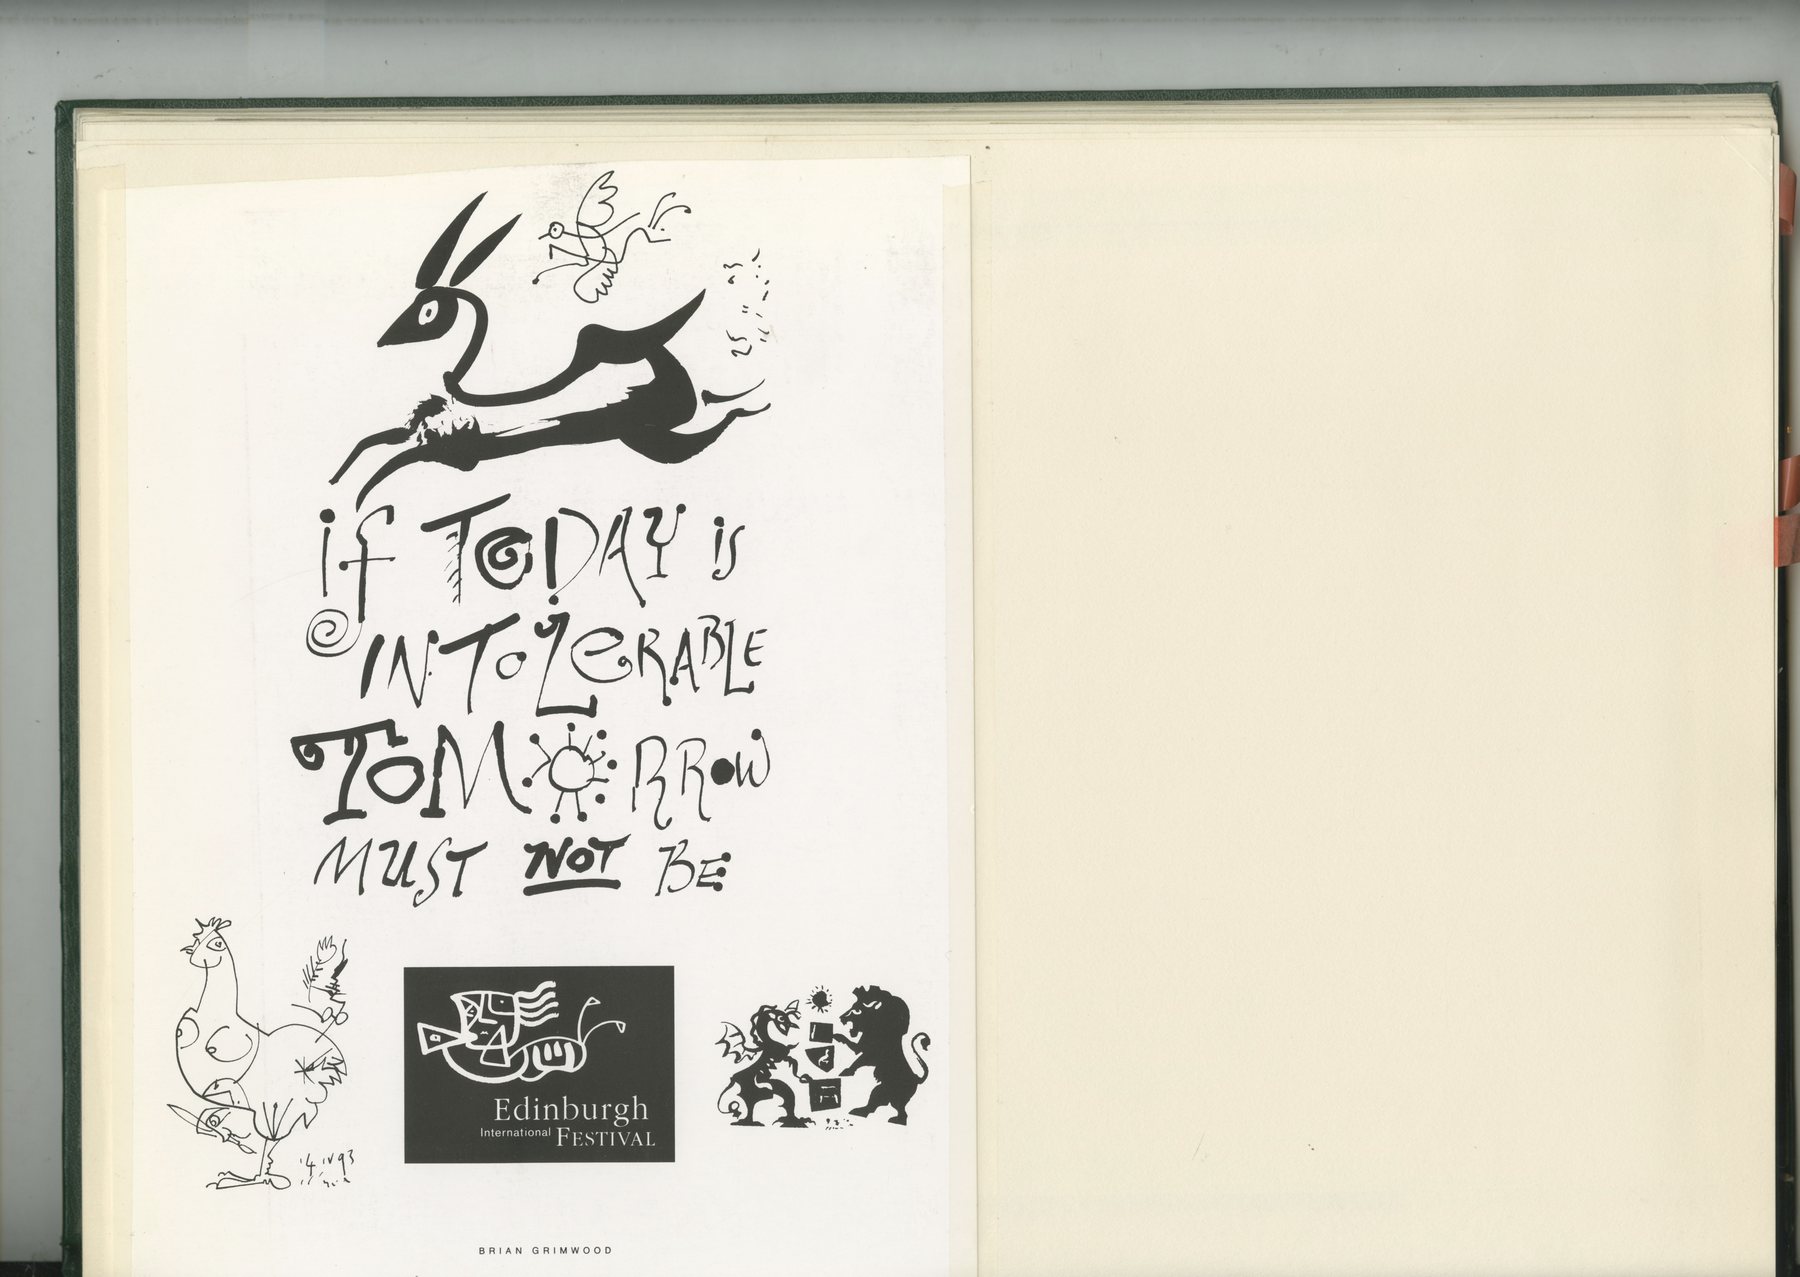 if TODAY is
INTOLERABLE
TOMORROW
MUST NOT BE
14 IV 93
Edinburgh
International FESTIVAL
BRIAN GRIMWOOD